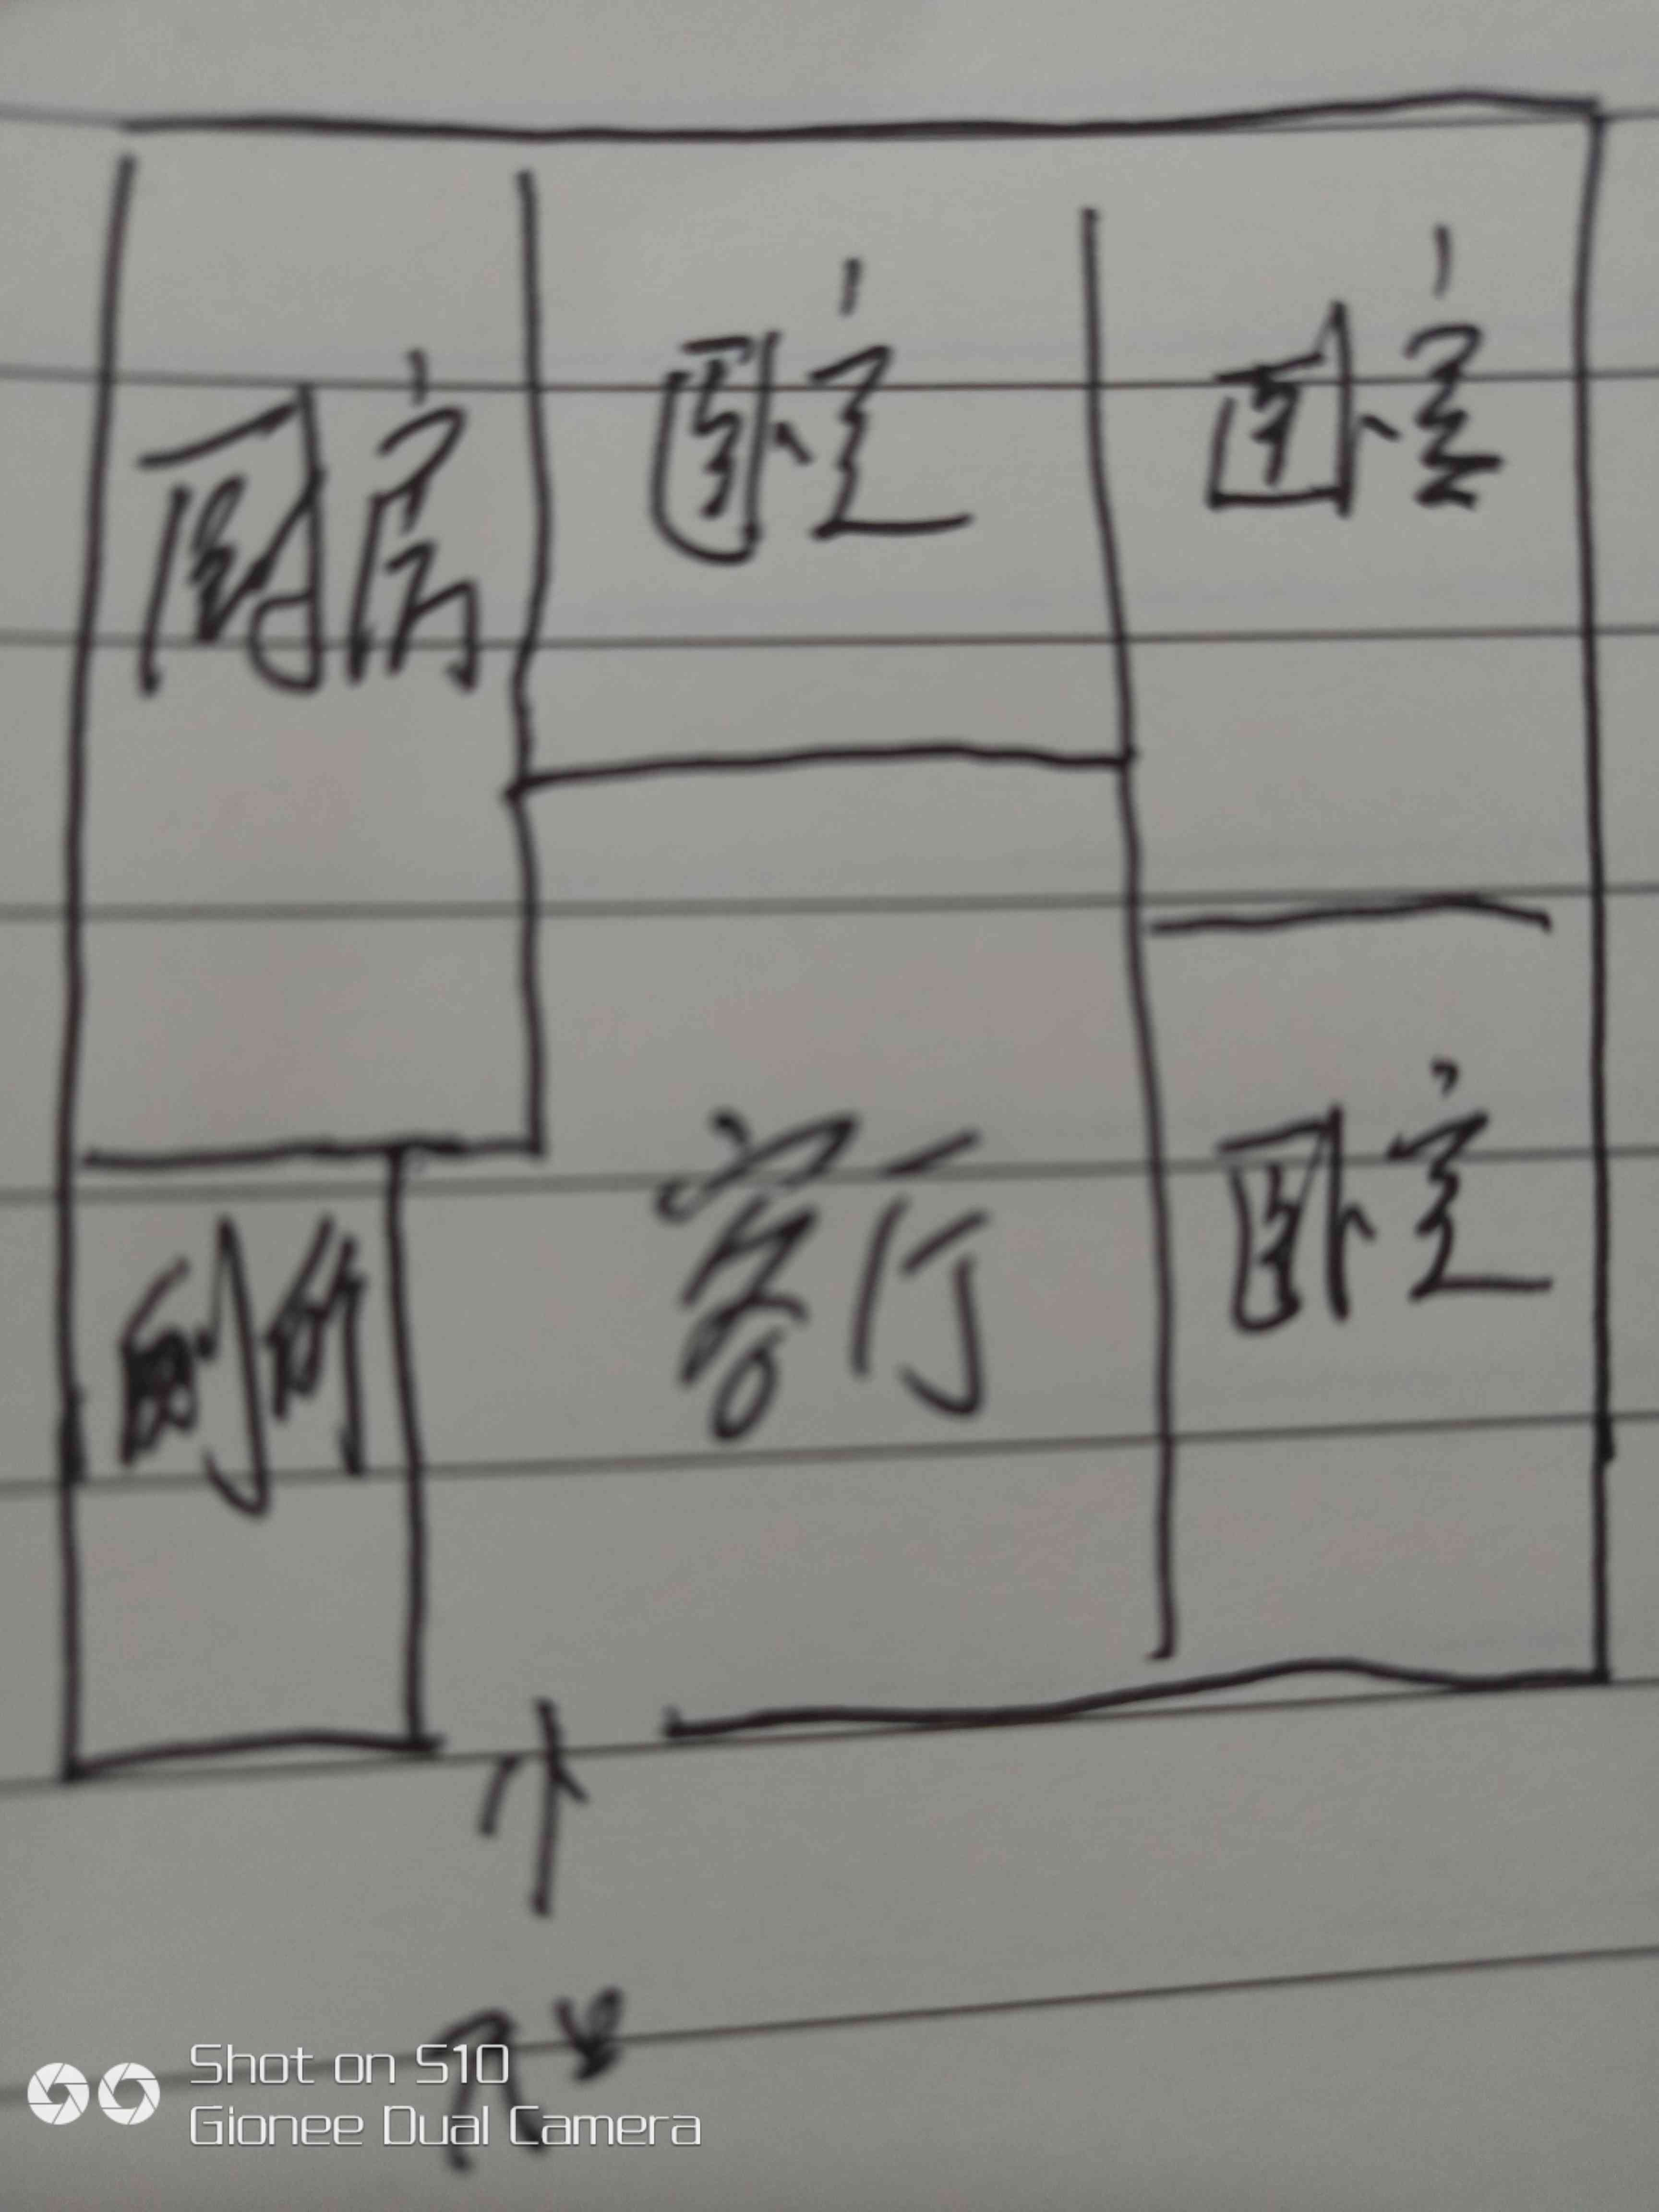 厨房
卧室
卧室
厕所
客厅
卧室
Shot on S10
Gionee Dual Camera